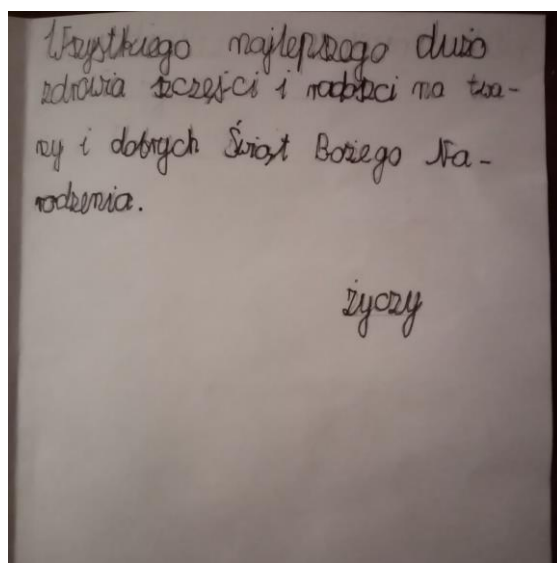 Wszystkiego najlepszego dużo
zdrowia szczęści i radości na twa-
rzy i dobrych Świąt Bożego Na-
rodzenia.
życzy